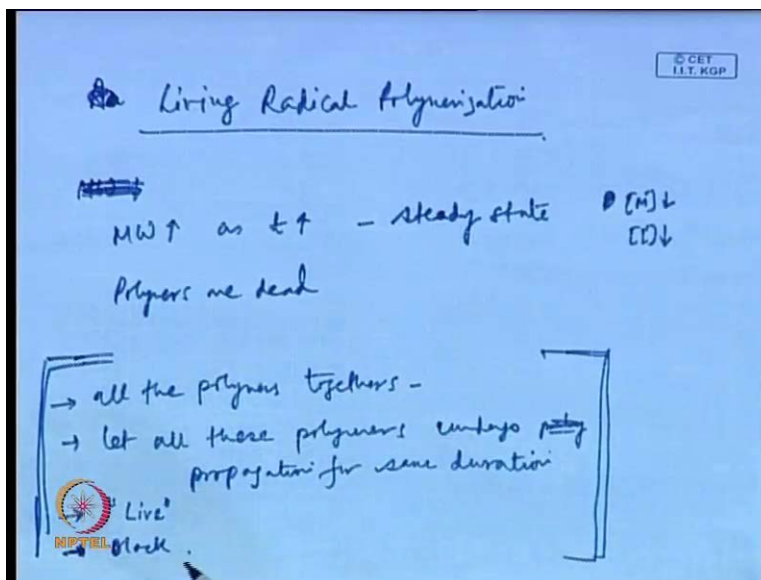 © CET
I.I.T. KGP
Living Radical Polymerization
MW↑ as t↑ - steady state [M]↓
[I]↓
Polymers are dead
→ all the polymers togethers -
→ let all these polymers undergo
propagation for same duration
→ "Live"
NPTEL
→ Block .